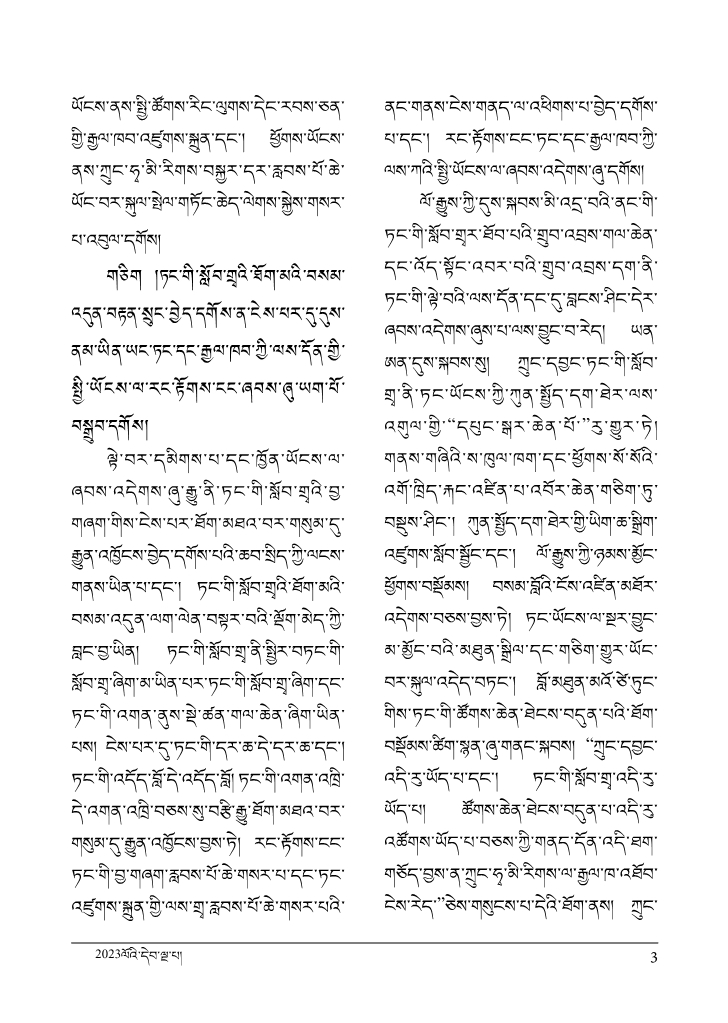 ཡོངས་ནས་སྤྱི་ཚོགས་རིང་ལུགས་དེང་རབས་ཅན་
གྱི་རྒྱལ་ཁབ་འཛུགས་སྐྲུན་དང་། ཕྱོགས་ཡོངས་
ནས་ཀྲུང་ཧྭ་མི་རིགས་བསྐྱར་དར་རླབས་པོ་ཆེ་
ཡོང་བར་སྐུལ་སྤེལ་གཏོང་ཆེད་ལེགས་སྐྱེས་གསར་
པ་འབུལ་དགོས།
གཅིག །ཏང་གི་སློབ་གྲྭའི་ཐོག་མའི་བསམ་
འདུན་བརྟན་སྲུང་བྱེད་དགོས་ན་ངེས་པར་དུ་དུས་
ནམ་ཡིན་ཡང་ཏང་དང་རྒྱལ་ཁབ་ཀྱི་ལས་དོན་གྱི་
སྤྱི་ཡོངས་ལ་རང་རྟོགས་ངང་ཞབས་ཞུ་ཡག་པོ་
བསྒྲུབ་དགོས།
ལྟེ་བར་དམིགས་པ་དང་ཁྱོན་ཡོངས་ལ་
ཞབས་འདེགས་ཞུ་རྒྱུ་ནི་ཏང་གི་སློབ་གྲྭའི་བྱ་
གཞག་གིས་ངེས་པར་ཐོག་མཐའ་བར་གསུམ་དུ་
རྒྱུན་འཁྱོངས་བྱེད་དགོས་པའི་ཆབ་སྲིད་ཀྱི་ལངས་
གནས་ཡིན་པ་དང་། ཏང་གི་སློབ་གྲྭའི་ཐོག་མའི་
བསམ་འདུན་ལག་ལེན་བསྟར་བའི་ལྡོག་མེད་ཀྱི་
བླང་བྱ་ཡིན། ཏང་གི་སློབ་གྲྭ་ནི་སྤྱིར་བཏང་གི་
སློབ་གྲྭ་ཞིག་མ་ཡིན་པར་ཏང་གི་སློབ་གྲྭ་ཞིག་དང་
ཏང་གི་འགན་ནུས་སྡེ་ཚན་གལ་ཆེན་ཞིག་ཡིན་
པས། ངེས་པར་དུ་ཏང་གི་དར་ཆ་དེ་དར་ཆ་དང་།
ཏང་གི་འདོད་བློ་དེ་འདོད་བློ། ཏང་གི་འགན་འཁྲི་
དེ་འགན་འཁྲི་བཅས་སུ་བརྩི་རྒྱུ་ཐོག་མཐའ་བར་
གསུམ་དུ་རྒྱུན་འཁྱོངས་བྱས་ཏེ། རང་རྟོགས་ངང་
ཏང་གི་བྱ་གཞག་རླབས་པོ་ཆེ་གསར་པ་དང་ཏང་
འཛུགས་སྐྲུན་གྱི་ལས་གྲྭ་རླབས་པོ་ཆེ་གསར་པའི་
ནང་གནས་ངེས་གནད་ལ་འཕིགས་པ་བྱེད་དགོས་
པ་དང་། རང་རྟོགས་ངང་ཏང་དང་རྒྱལ་ཁབ་ཀྱི་
ལས་ཀའི་སྤྱི་ཡོངས་ལ་ཞབས་འདེགས་ཞུ་དགོས།
ལོ་རྒྱུས་ཀྱི་དུས་སྐབས་མི་འདྲ་བའི་ནང་གི་
ཏང་གི་སློབ་གྲྭར་ཐོབ་པའི་གྲུབ་འབྲས་གལ་ཆེན་
དང་འོད་སྟོང་འབར་བའི་གྲུབ་འབྲས་དག་ནི་
ཏང་གི་ལྟེ་བའི་ལས་དོན་དང་དུ་བླངས་ཤིང་དེར་
ཞབས་འདེགས་ཞུས་པ་ལས་བྱུང་བ་རེད། ཡན་
ཨན་དུས་སྐབས་སུ། ཀྲུང་དབྱང་ཏང་གི་སློབ་
གྲྭ་ནི་ཏང་ཡོངས་ཀྱི་ཀུན་སྤྱོད་དག་ཐེར་ལས་
འགུལ་གྱི་“དཔུང་སྒར་ཆེན་པོ་”རུ་གྱུར་ཏེ།
གནས་གཞིའི་ས་ཁུལ་ཁག་དང་ཕྱོགས་སོ་སོའི་
འགོ་ཁྲིད་རྐང་འཛིན་པ་འབོར་ཆེན་གཅིག་ཏུ་
བསྡུས་ཤིང་། ཀུན་སྤྱོད་དག་ཐེར་གྱི་ཡིག་ཆ་སྒྲིག་
འཛུགས་སློབ་སྦྱོང་དང་། ལོ་རྒྱུས་ཀྱི་ཉམས་མྱོང་
ཕྱོགས་བསྡོམས། བསམ་བློའི་ངོས་འཛིན་མཐོར་
འདེགས་བཅས་བྱས་ཏེ། ཏང་ཡོངས་ལ་སྔར་བྱུང་
མ་མྱོང་བའི་མཐུན་སྒྲིལ་དང་གཅིག་གྱུར་ཡོང་
བར་སྐུལ་འདེད་བཏང་། བློ་མཐུན་མའོ་ཙེ་ཏུང་
གིས་ཏང་གི་ཚོགས་ཆེན་ཐེངས་བདུན་པའི་ཐོག་
བསྡོམས་ཚིག་སྙན་ཞུ་གནང་སྐབས། “ཀྲུང་དབྱང་
འདི་རུ་ཡོད་པ་དང་། ཏང་གི་སློབ་གྲྭ་འདི་རུ་
ཡོད་པ། ཚོགས་ཆེན་ཐེངས་བདུན་པ་འདི་རུ་
འཚོགས་ཡོད་པ་བཅས་ཀྱི་གནད་དོན་འདི་ཐག་
གཅོད་བྱས་ན་ཀྲུང་ཧྭ་མི་རིགས་ལ་རྒྱལ་ཁ་འཐོབ་
ངེས་རེད་”ཅེས་གསུངས་པ་དེའི་ཐོག་ནས། ཀྲུང་
2023ལོའི་དེབ་ལྔ་པ། 3